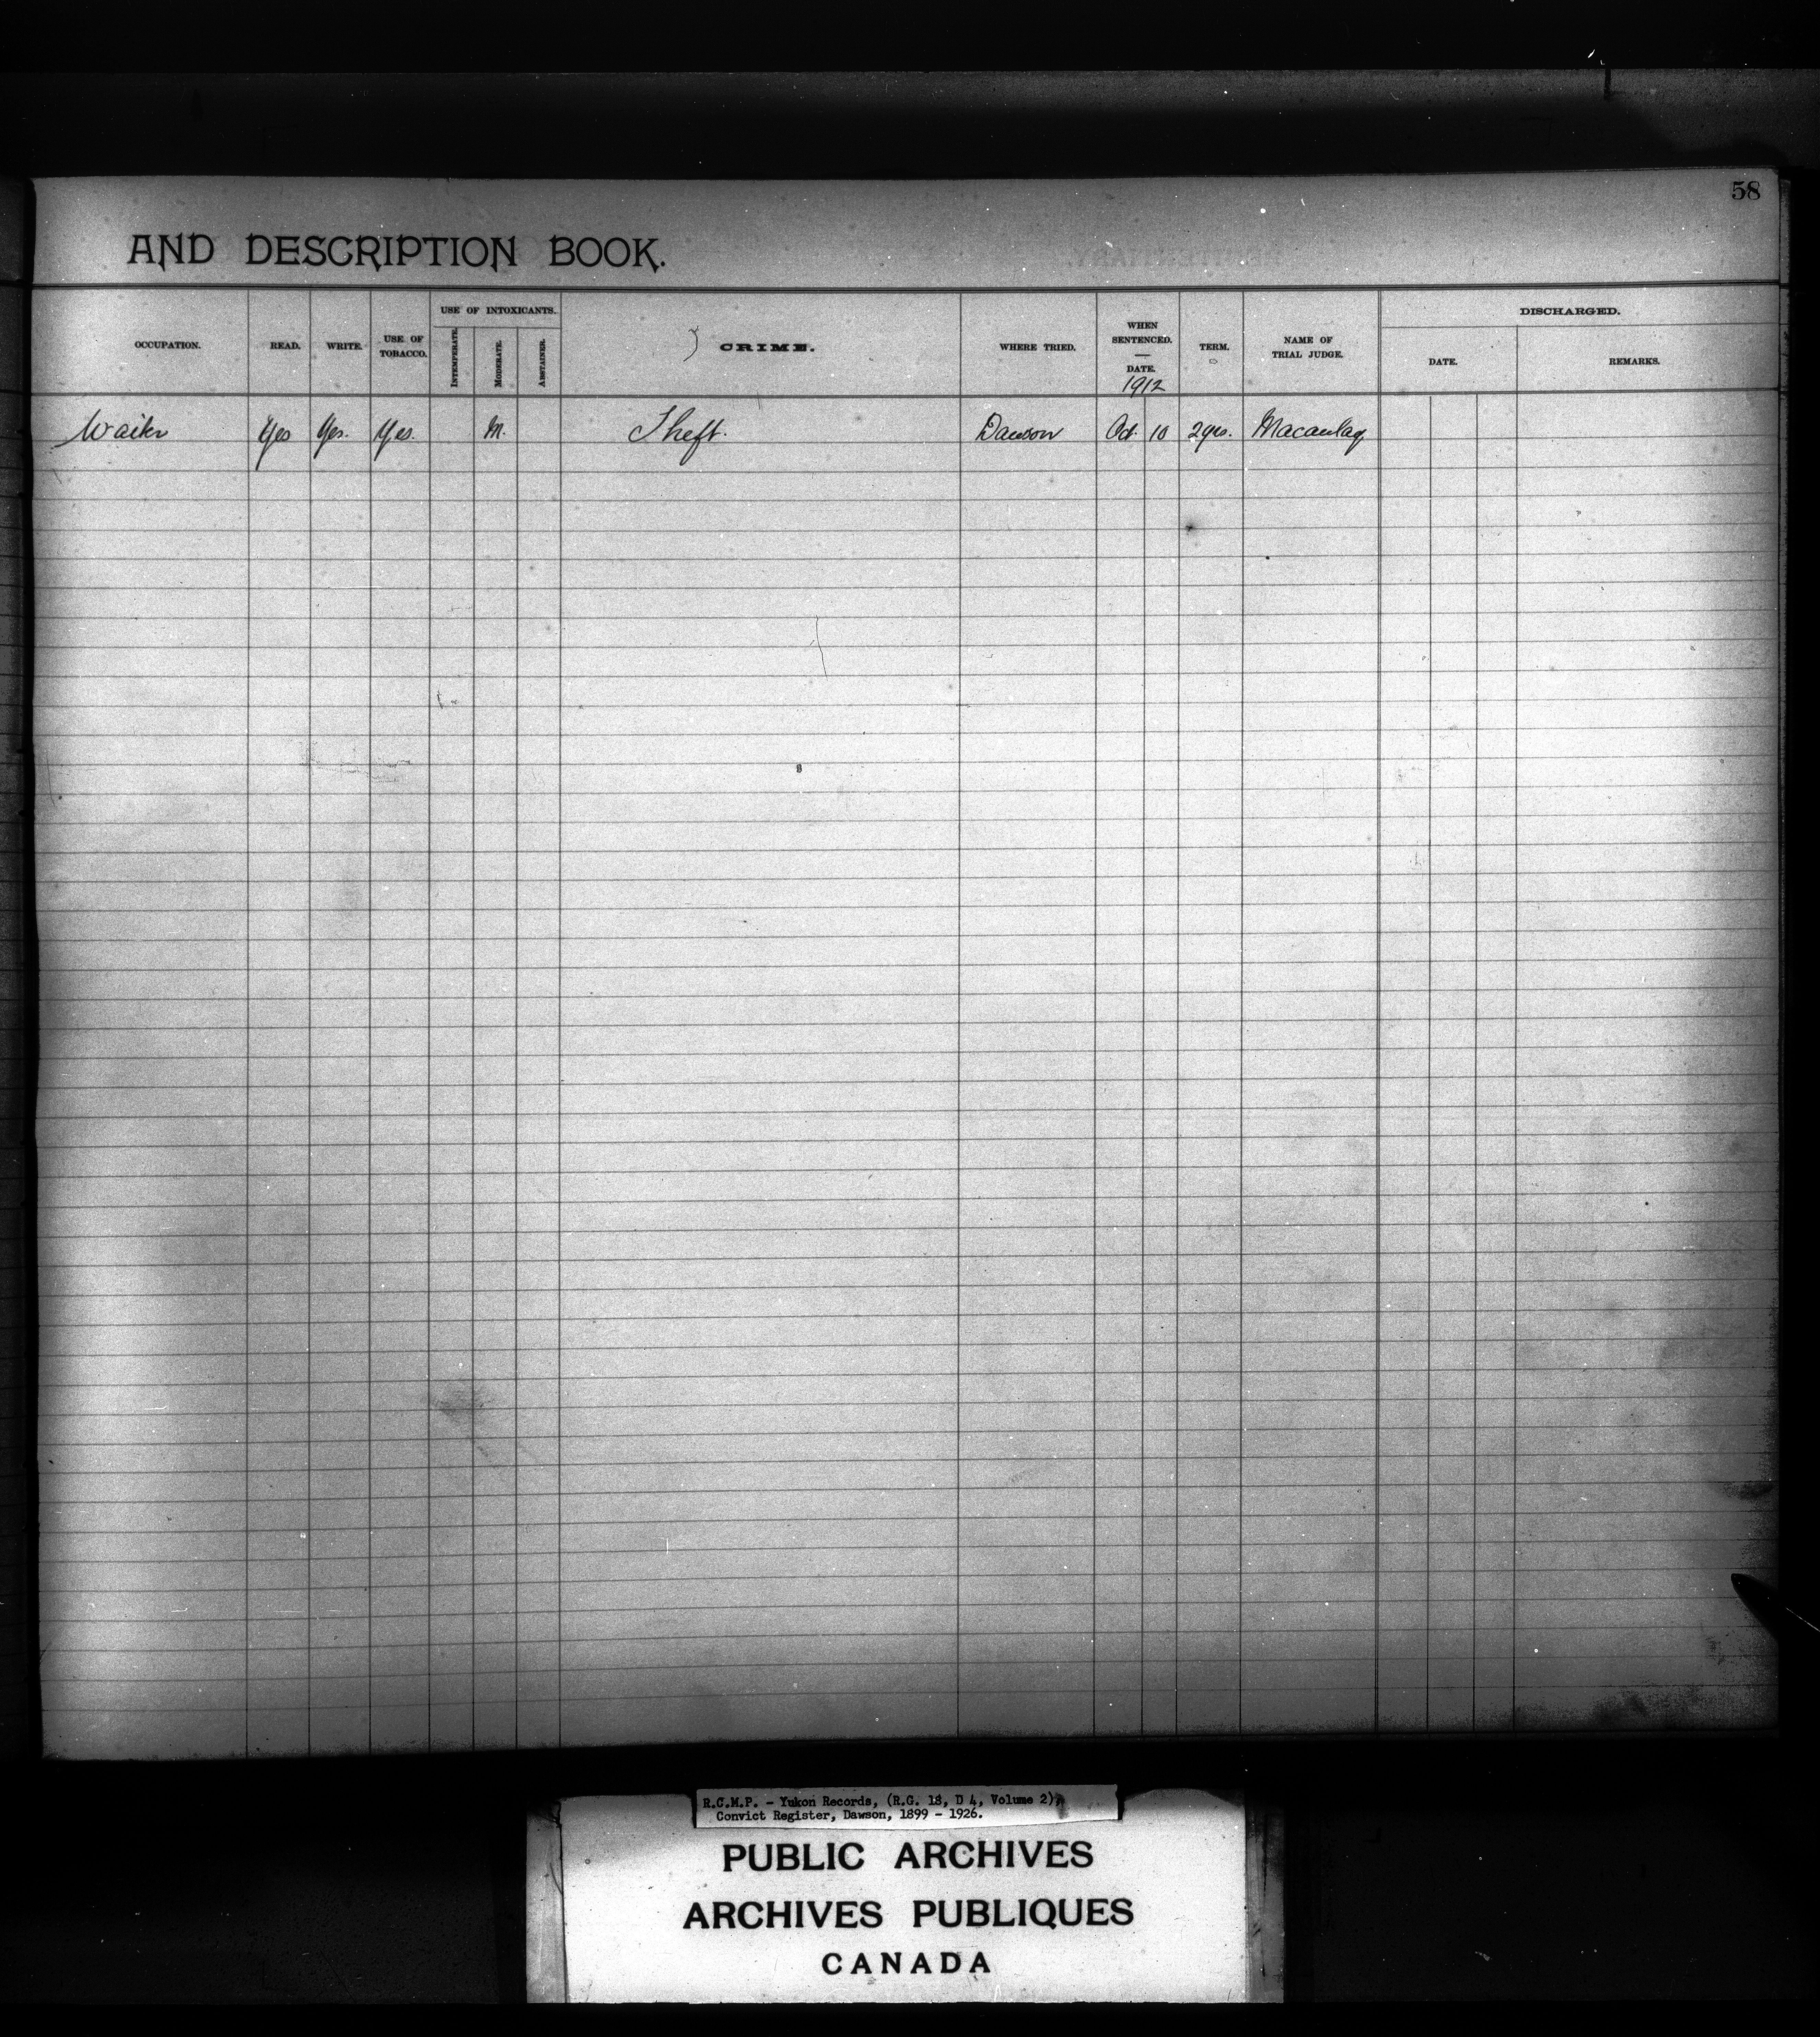 58
AND DESCRIPTION BOOK.
OCCUPATION. READ. WRITE. USE OF TOBACCO. USE OF INTOXICANTS. INTEMPERATE. MODERATE. ABSTAINER. CRIME. WHERE TRIED. WHEN SENTENCED. — DATE. 1912 TERM. NAME OF TRIAL JUDGE. DISCHARGED. DATE. REMARKS.
Waiter Yes Yes. Yes. M. Theft. Dawson Oct. 10 2 yrs. Macaulay
R.C.M.P. - Yukon Records, (R.G. 18, D 4, Volume 2),
Convict Register, Dawson, 1899 - 1926.
PUBLIC ARCHIVES
ARCHIVES PUBLIQUES
CANADA